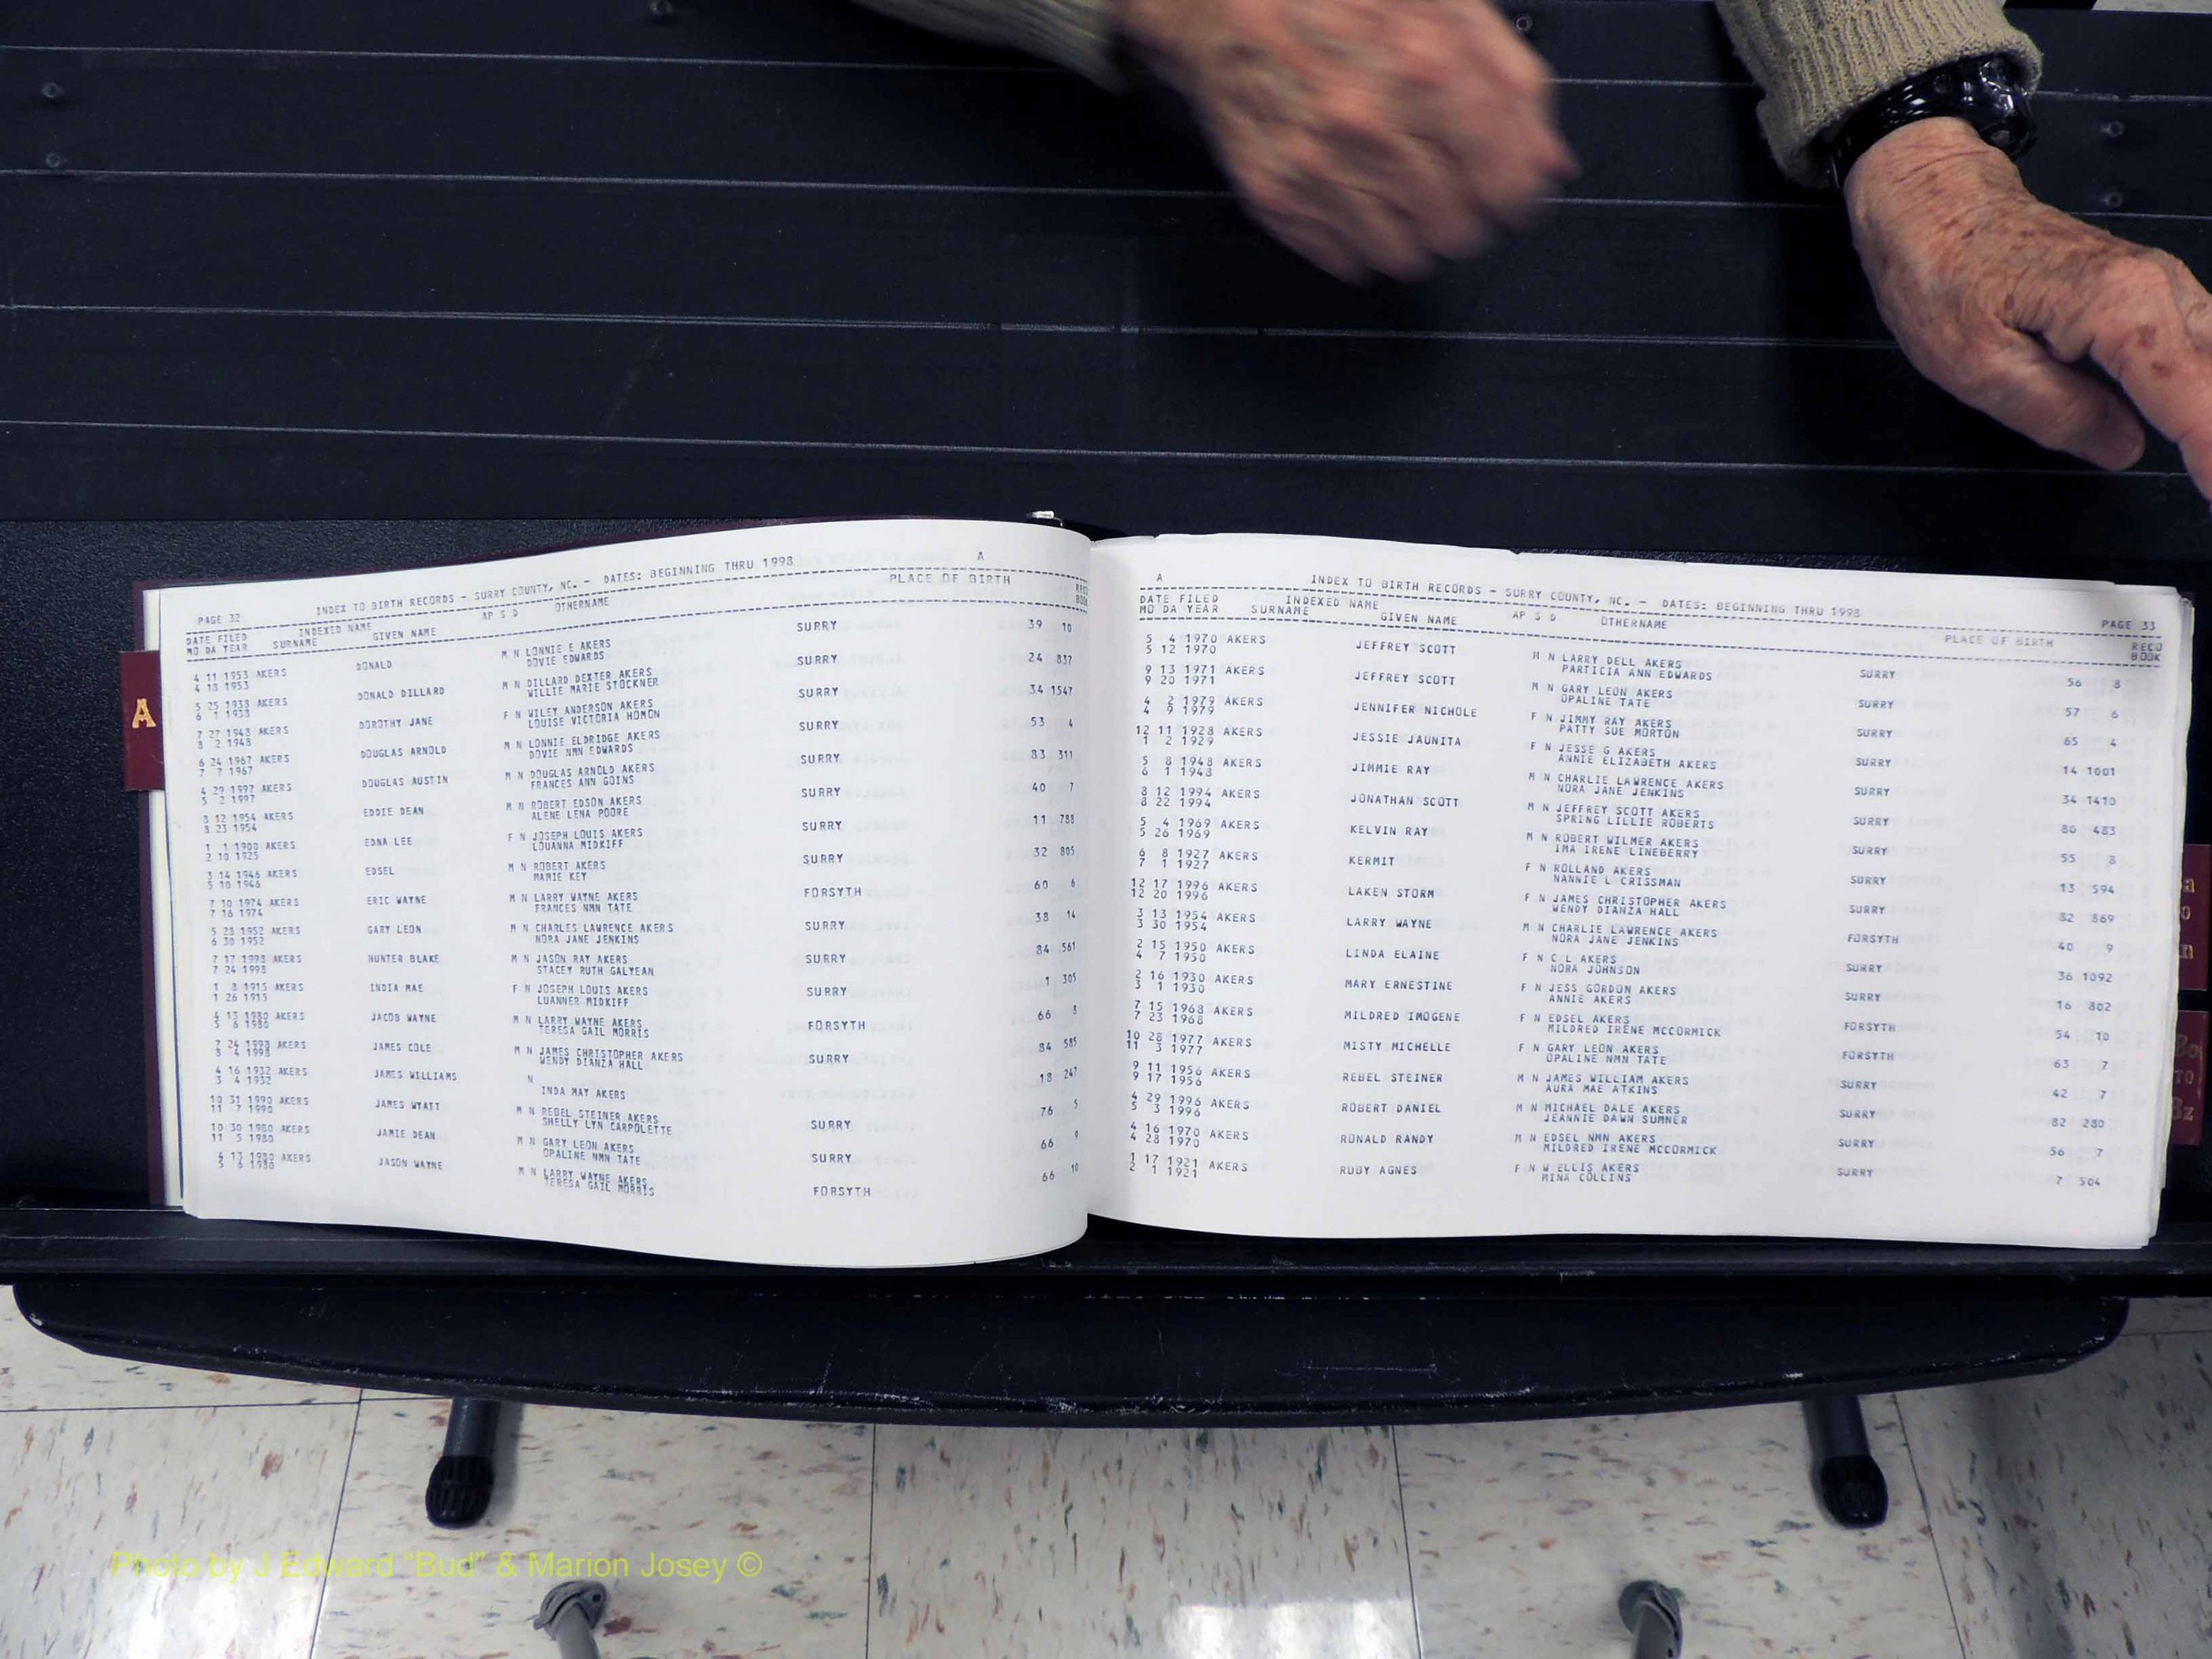 PAGE 32 INDEX TO BIRTH RECORDS - SURRY COUNTY, NC. - DATES: BEGINNING THRU 1998 A
DATE FILED INDEXED NAME AP S D OTHERNAME PLACE OF BIRTH
MO DA YEAR SURNAME GIVEN NAME
4 11 1953 AKERS DONALD M N LONNIE E AKERS SURRY 39 10
4 18 1953 DOVIE EDWARDS
5 25 1938 AKERS DONALD DILLARD M N DILLARD DEXTER AKERS SURRY 24 837
6 1 1938 WILLIE MARIE STOCKNER
7 27 1948 AKERS DOROTHY JANE F N WILEY ANDERSON AKERS SURRY 34 1547
8 2 1948 LOUISE VICTORIA HOMON
6 24 1967 AKERS DOUGLAS ARNOLD M N LONNIE ELDRIDGE AKERS SURRY 53 4
7 7 1967 DOVIE NMN EDWARDS
4 29 1997 AKERS DOUGLAS AUSTIN M N DOUGLAS ARNOLD AKERS SURRY 83 311
5 2 1997 FRANCES ANN GOINS
8 12 1954 AKERS EDDIE DEAN M N ROBERT EDSON AKERS SURRY 40 7
8 23 1954 ALENE LENA POORE
1 1 1900 AKERS EDNA LEE F N JOSEPH LOUIS AKERS SURRY 11 788
2 10 1925 LOUANNA MIDKIFF
3 14 1946 AKERS EDSEL M N ROBERT AKERS SURRY 32 805
5 10 1946 MAMIE KEY
7 10 1974 AKERS ERIC WAYNE M N LARRY WAYNE AKERS FORSYTH 60 6
7 16 1974 FRANCES NMN TATE
5 28 1952 AKERS GARY LEON M N CHARLES LAWRENCE AKERS SURRY 38 14
6 30 1952 NORA JANE JENKINS
7 17 1998 AKERS HUNTER BLAKE M N JASON RAY AKERS SURRY 84 561
7 24 1998 STACEY RUTH GALYEAN
1 8 1915 AKERS INDIA MAE F N JOSEPH LOUIS AKERS SURRY 1 305
1 26 1915 LUANNER MIDKIFF
4 13 1980 AKERS JACOB WAYNE M N LARRY WAYNE AKERS FORSYTH 66 8
5 6 1980 TERESA GAIL MORRIS
7 24 1998 AKERS JAMES COLE M N JAMES CHRISTOPHER AKERS SURRY 84 585
8 4 1998 WENDY DIANZA HALL
4 16 1932 AKERS JAMES WILLIAMS N 18 247
3 4 1932 INDA MAY AKERS
10 31 1990 AKERS JAMES WYATT M N REBEL STEINER AKERS SURRY 76 5
11 7 1990 SHELLY LYN CARPOLETTE
10 30 1980 AKERS JAMIE DEAN M N GARY LEON AKERS SURRY 66 9
11 5 1980 OPALINE NMN TATE
4 13 1980 AKERS JASON WAYNE M N LARRY WAYNE AKERS FORSYTH 66 10
5 6 1980 TERESA GAIL MORRIS
A INDEX TO BIRTH RECORDS - SURRY COUNTY, NC. - DATES: BEGINNING THRU 1998 PAGE 33
DATE FILED INDEXED NAME AP S D OTHERNAME PLACE OF BIRTH RECD
MO DA YEAR SURNAME GIVEN NAME BOOK
5 4 1970 AKERS JEFFREY SCOTT M N LARRY DELL AKERS SURRY 56 8
5 12 1970 PARTICIA ANN EDWARDS
9 13 1971 AKERS JEFFREY SCOTT M N GARY LEON AKERS SURRY 57 6
9 20 1971 OPALINE TATE
4 2 1979 AKERS JENNIFER NICHOLE F N JIMMY RAY AKERS SURRY 65 4
4 9 1979 PATTY SUE MORTON
12 11 1928 AKERS JESSIE JAUNITA F N JESSE G AKERS SURRY 14 1001
1 2 1929 ANNIE ELIZABETH AKERS
5 8 1948 AKERS JIMMIE RAY M N CHARLIE LAWRENCE AKERS SURRY 34 1410
6 1 1948 NORA JANE JENKINS
8 12 1994 AKERS JONATHAN SCOTT M N JEFFREY SCOTT AKERS SURRY 80 483
8 22 1994 SPRING LILLIE ROBERTS
5 4 1969 AKERS KELVIN RAY M N ROBERT WILMER AKERS SURRY 55 8
5 26 1969 IMA IRENE LINEBERRY
6 8 1927 AKERS KERMIT F N ROLLAND AKERS SURRY 13 594
7 1 1927 NANNIE L CRISSMAN
12 17 1996 AKERS LAKEN STORM F N JAMES CHRISTOPHER AKERS SURRY 82 869
12 20 1996 WENDY DIANZA HALL
3 13 1954 AKERS LARRY WAYNE M N CHARLIE LAWRENCE AKERS FORSYTH 40 9
3 30 1954 NORA JANE JENKINS
2 15 1950 AKERS LINDA ELAINE F N C L AKERS SURRY 36 1092
4 7 1950 NORA JOHNSON
2 16 1930 AKERS MARY ERNESTINE F N JESS GORDON AKERS SURRY 16 802
3 1 1930 ANNIE AKERS
7 15 1968 AKERS MILDRED IMOGENE F N EDSEL AKERS FORSYTH 54 10
7 23 1968 MILDRED IRENE MCCORMICK
10 28 1977 AKERS MISTY MICHELLE F N GARY LEON AKERS FORSYTH 63 7
11 3 1977 OPALINE NMN TATE
9 11 1956 AKERS REBEL STEINER M N JAMES WILLIAM AKERS SURRY 42 7
9 17 1956 AURA MAE ATKINS
4 29 1996 AKERS ROBERT DANIEL M N MICHAEL DALE AKERS SURRY 82 280
5 3 1996 JEANNIE DAWN SUMNER
4 16 1970 AKERS RONALD RANDY M N EDSEL NMN AKERS SURRY 56 7
4 28 1970 MILDRED IRENE MCCORMICK
1 17 1921 AKERS RUBY AGNES F N W ELLIS AKERS SURRY 7 504
2 1 1921 MINA COLLINS
A
Photo by J Edward "Bud" & Marion Josey ©